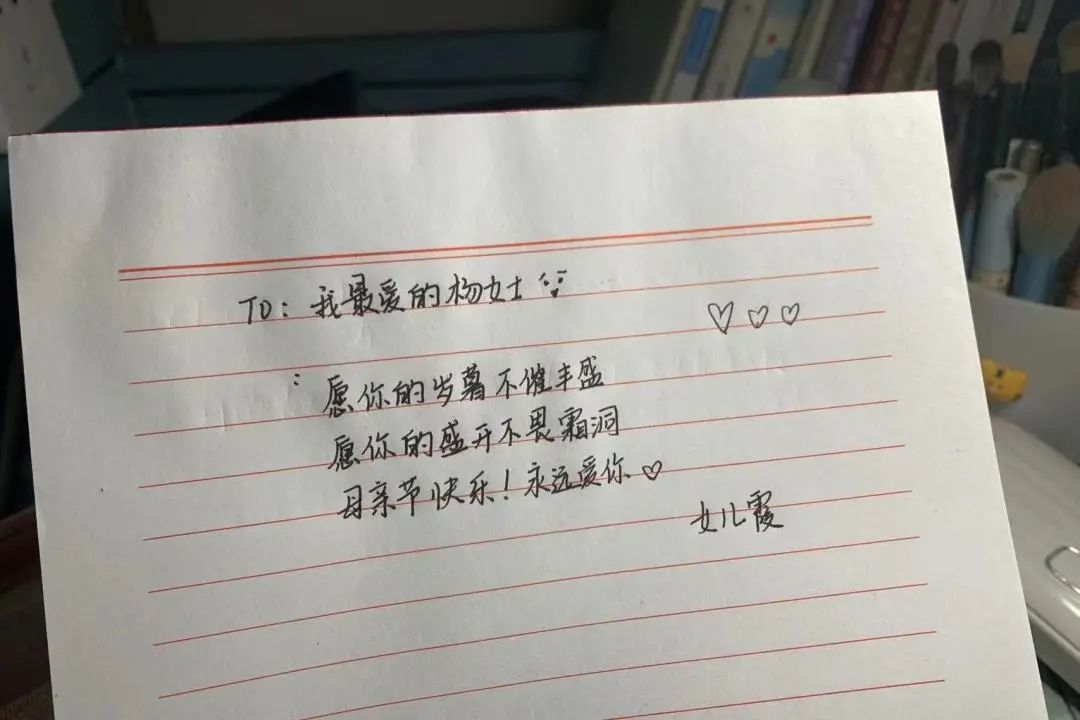 TO: 我最爱的杨女士
: 愿你的岁暮不催丰盛
愿你的盛开不畏霜洞
母亲节快乐!永远爱你♡
女儿霞